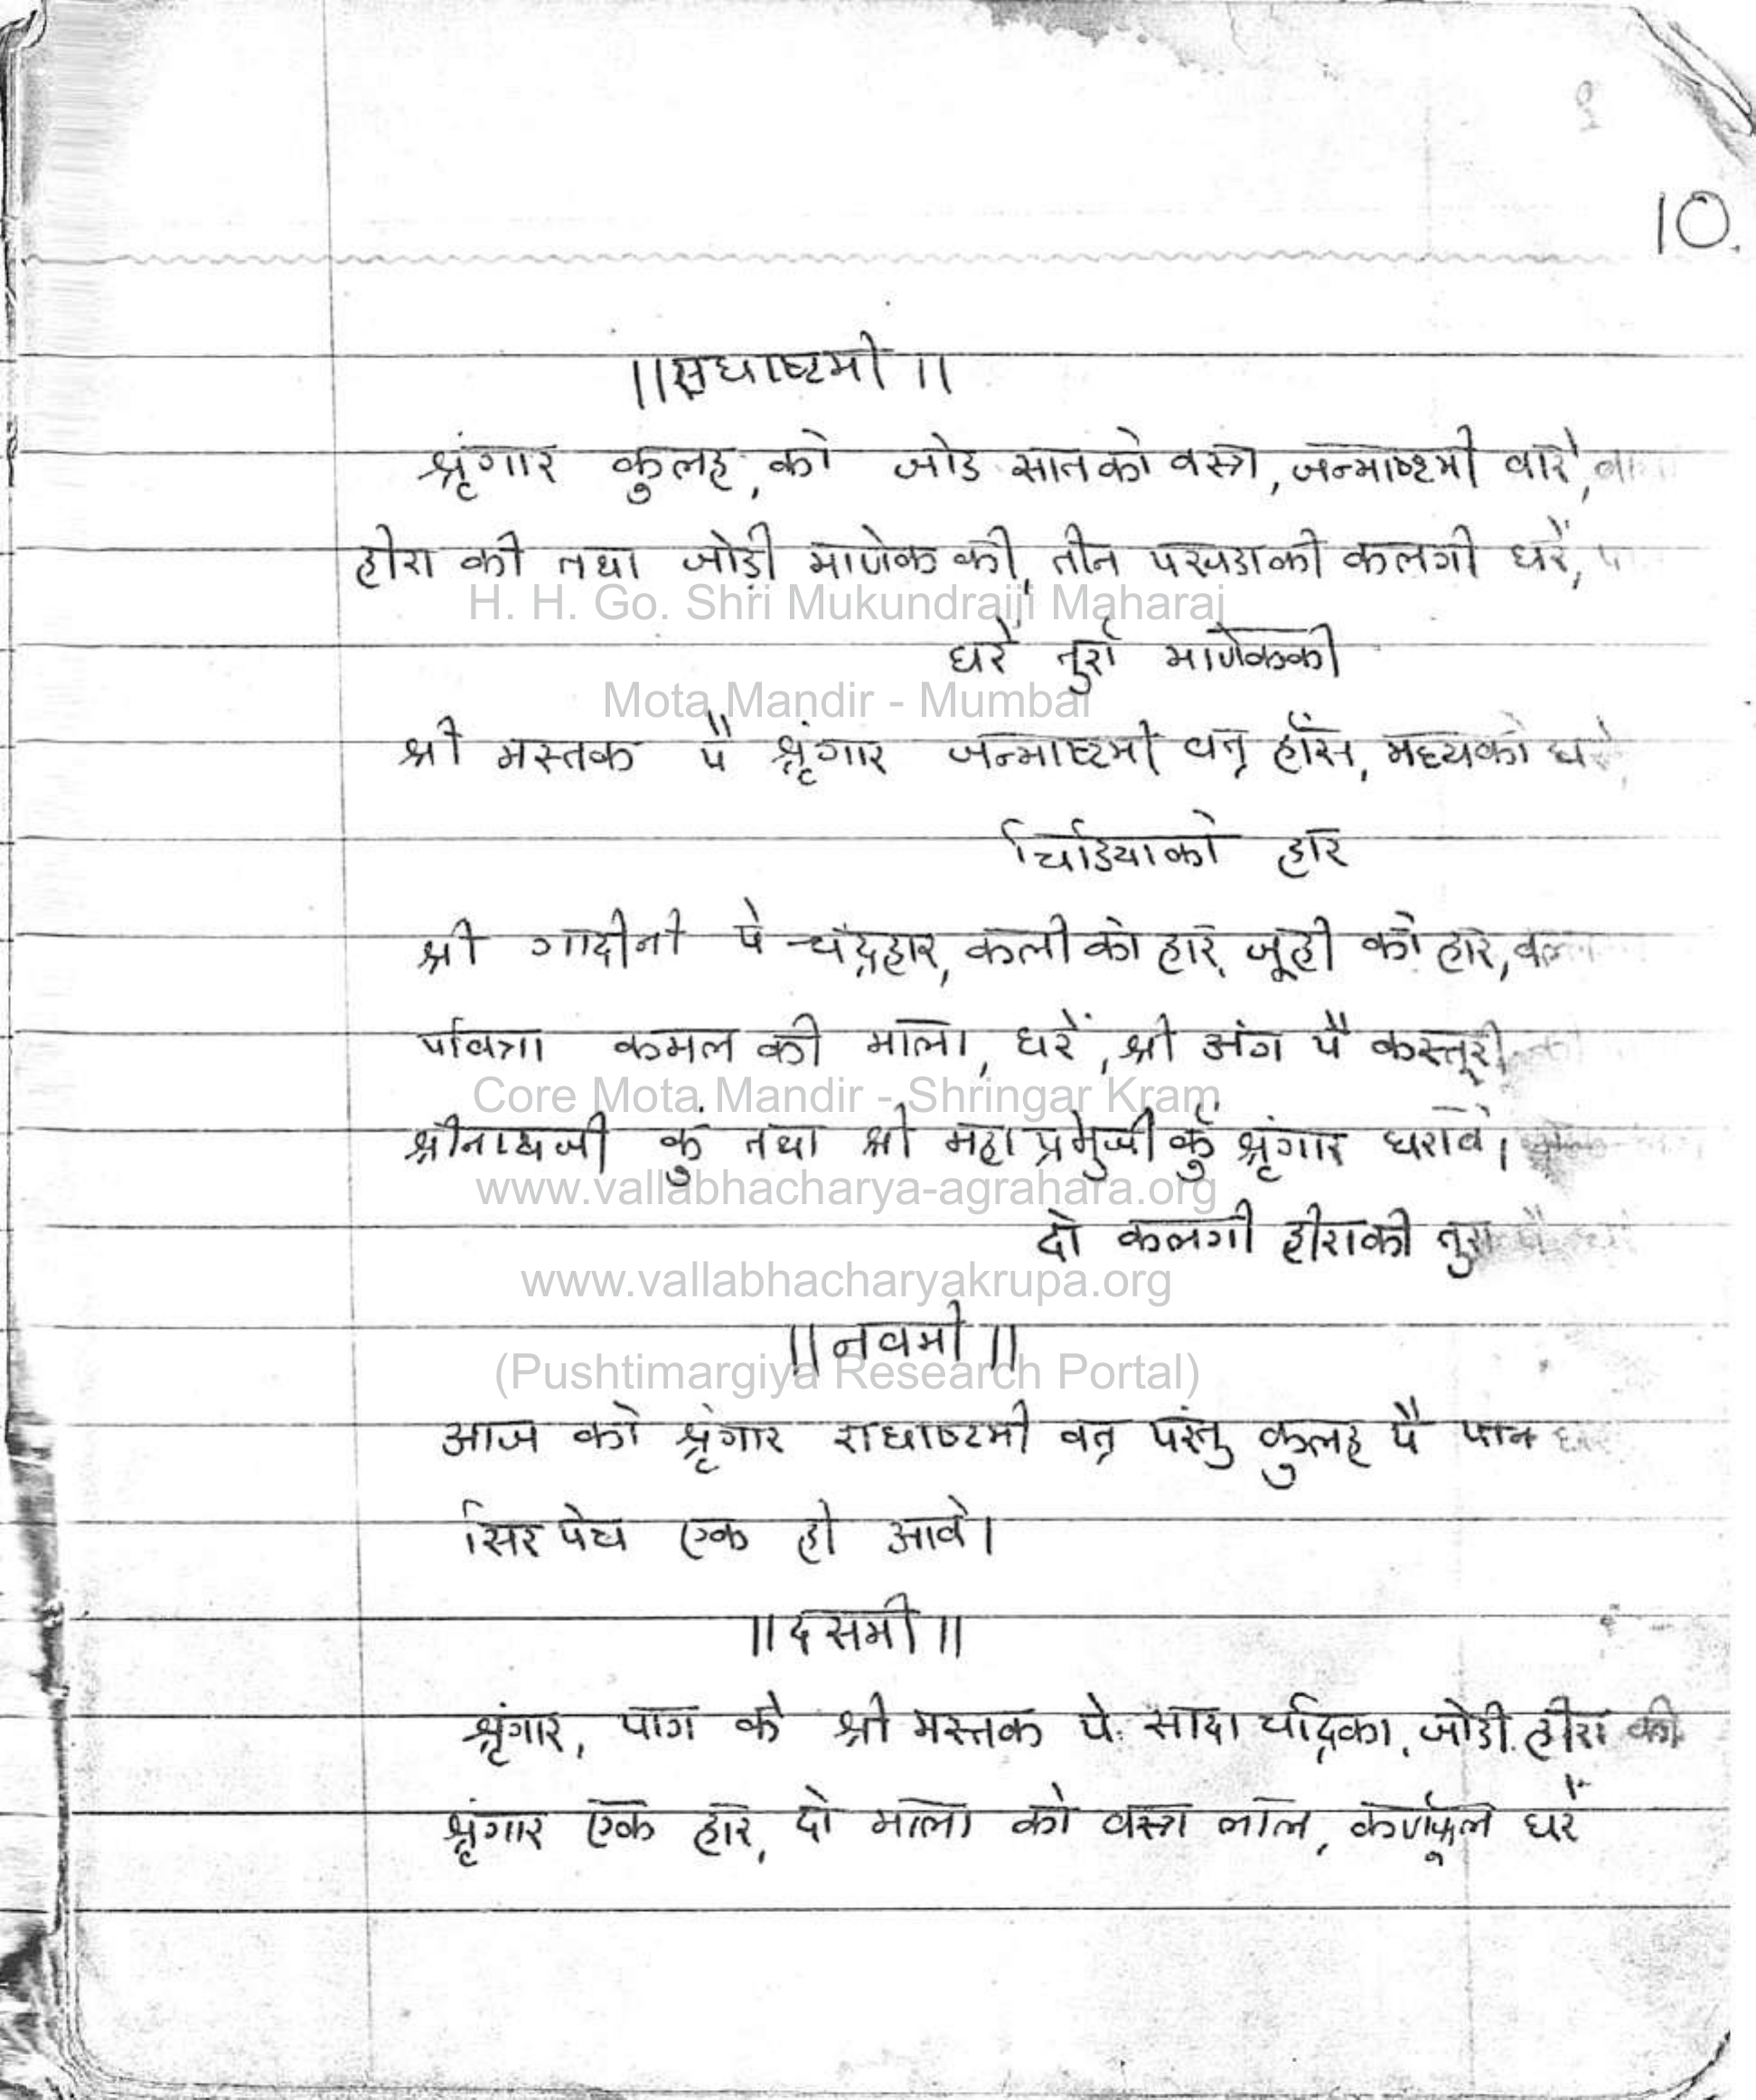 10.
||राधाष्टमी||
श्रृंगार कुलह, को जोड सातको वस्त्र, जन्माष्टमी वारे,
हीरा की तथा जोड़ी माणेक की, तीन पखडाकी कलगी धरें,
H. H. Go. Shri Mukundraiji Maharaj
धरें तुर्रा माणेककी
Mota Mandir - Mumbai
श्री मस्तक पै श्रृंगार जन्माष्टमी वत् हाँस, मध्यको
चिडियाको हार
श्री गादीजी पे चंद्रहार, कली को हार, जूही को हार,
पवित्रा कमल की माला, धरें, श्री अंग पै कस्तूरी
Core Mota Mandir - Shringar Kram
श्रीनाथजी कुं तथा श्री महाप्रभुजी कुं श्रृंगार धरावे।
www.vallabhacharya-agrahara.org
दो कलगी हीराकी
www.vallabhacharyakrupa.org
||नवमी||
(Pushtimargiya Research Portal)
आज को श्रृंगार राधाष्टमी वत् परंतु कुलह पै पान
सिर पेच एक ही आवे।
||दसमी||
श्रृंगार, पाग को श्री मस्तक पे सादा चंद्रिका, जोडी हीरा की
श्रृंगार एक हार, दो माला को वस्त्र लाल, कर्णफूल धरें